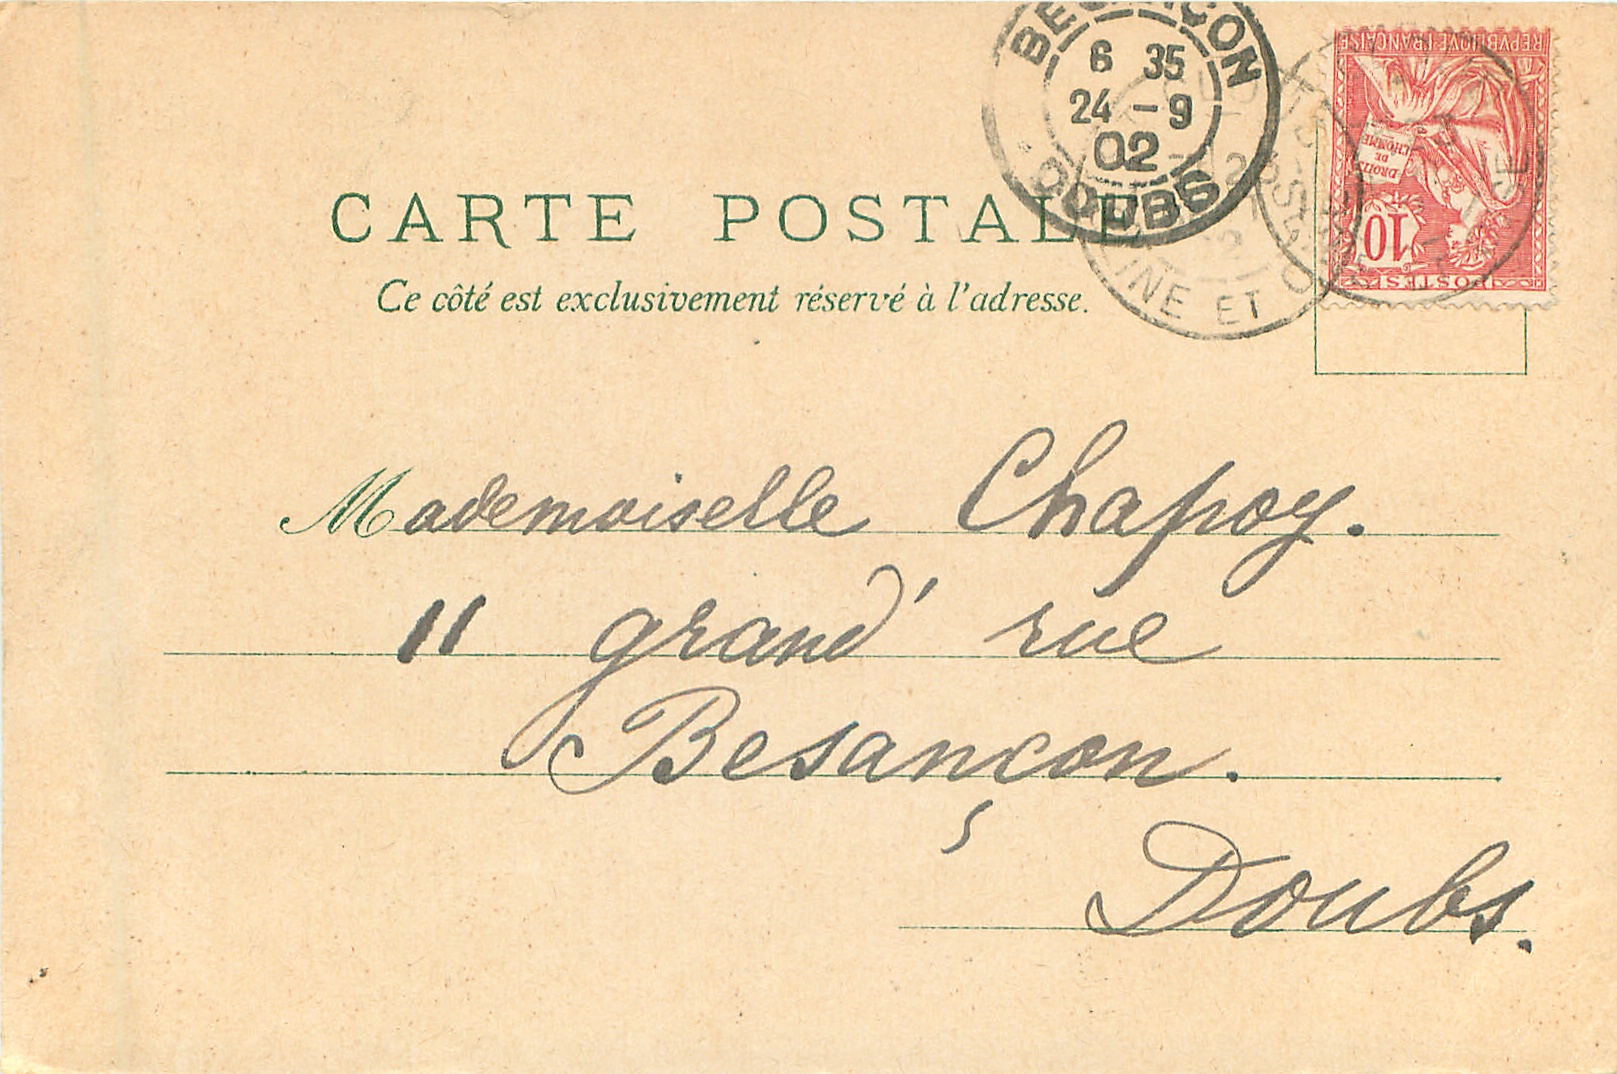 BESANÇON
6 35
24 - 9
02
DOUBS
REPVBLIQVE FRANÇAISE
DROITS
DE
L'HOMME
10
POSTES
CARTE POSTALE
INE ET O
Ce côté est exclusivement réservé à l'adresse.
Mademoiselle Chapoy.
11 grand' rue
Besançon.
Doubs.